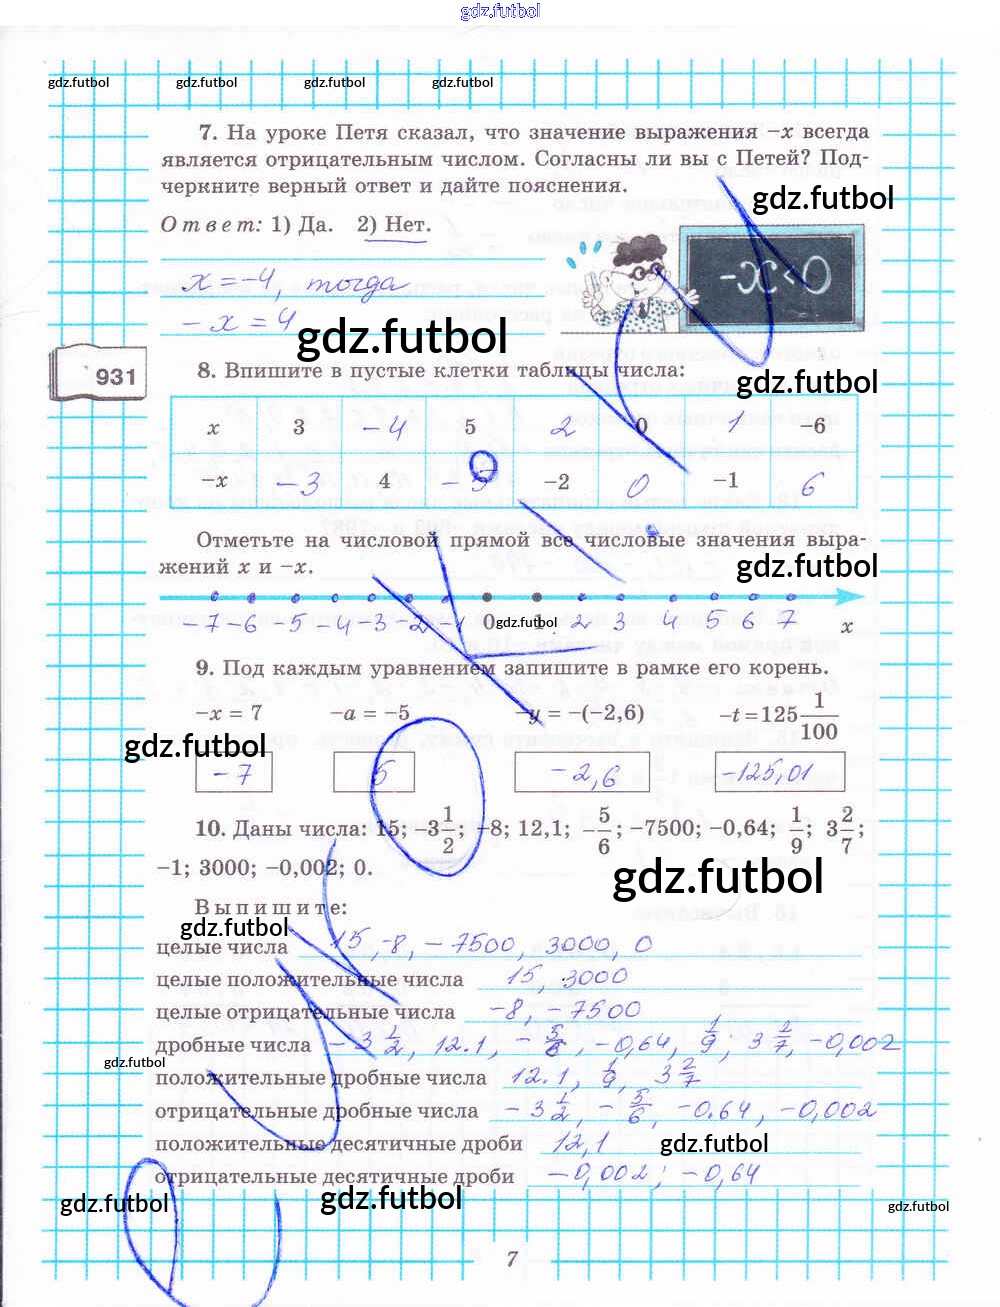 gdz.futbol
gdz.futbol gdz.futbol gdz.futbol gdz.futbol
7. На уроке Петя сказал, что значение выражения –x всегда
является отрицательным числом. Согласны ли вы с Петей? Под-
черкните верный ответ и дайте пояснения.
gdz.futbol
Ответ: 1) Да. 2) Нет.
x = -4, тогда
- x = 4
-x<0
gdz.futbol
931
8. Впишите в пустые клетки таблицы числа:
gdz.futbol
x 3 -4 5 2 0 1 -6
-x -3 4 -5 -2 0 -1 6
Отметьте на числовой прямой все числовые значения выра-
жений x и –x.
gdz.futbol
-7 -6 -5 -4 -3 -2 -1 0 1 2 3 4 5 6 7 x
gdz.futbol
9. Под каждым уравнением запишите в рамке его корень.
–x = 7 –a = –5 –y = –(–2,6) –t = 125 1/100
gdz.futbol
-7 5 -2,6 -125,01
10. Даны числа: 15; –3 1/2; –8; 12,1; –5/6; –7500; –0,64; 1/9; 3 2/7;
–1; 3000; –0,002; 0.
gdz.futbol
Выпишите:
gdz.futbol
целые числа 15, -8, -7500, 3000, 0
целые положительные числа 15, 3000
целые отрицательные числа -8, -7500
дробные числа -3 1/2, 12.1, -5/6, -0,64, 1/9; 3 2/7, -0,002
gdz.futbol
положительные дробные числа 12.1, 1/9, 3 2/7
отрицательные дробные числа -3 1/2, -5/6, -0.64, -0,002
положительные десятичные дроби 12,1
gdz.futbol
отрицательные десятичные дроби -0,002; -0,64
gdz.futbol gdz.futbol gdz.futbol
7